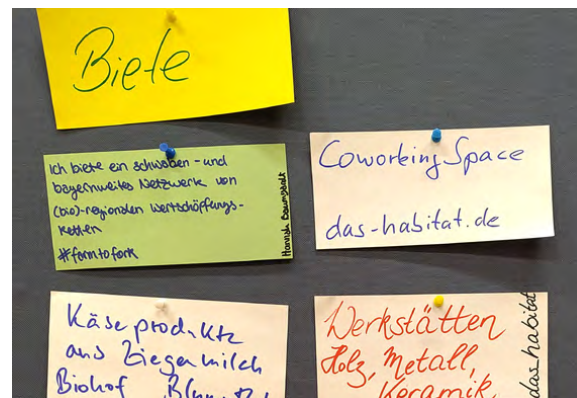 Biete
Ich biete ein schwaben- und
bayernweites Netzwerk von
(bio)-regionalen Wertschöpfungs-
ketten
#farmtofork
Hannah
Coworking Space
das-habitat.de
Käseprodukte
aus Ziegenmilch
Biohof
Werkstätten
Holz, Metall,
Keramik,
das_habitat